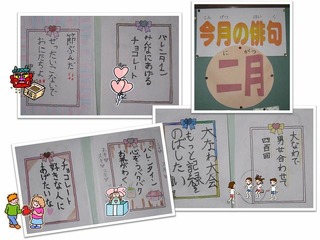 今月の俳句
こんげつ
はいく
二月
にがつ
バレンタイン
みんなにあげる
チョコレート
節ぶんだ
ぜったいこないで
おにさんよ
大なわで
男女合わせて
四百回
大なわ大会
もっと記録
のばしたい
バレンタイン
心ぞうバクバク
チョコレート
好きな人に
あげたいな